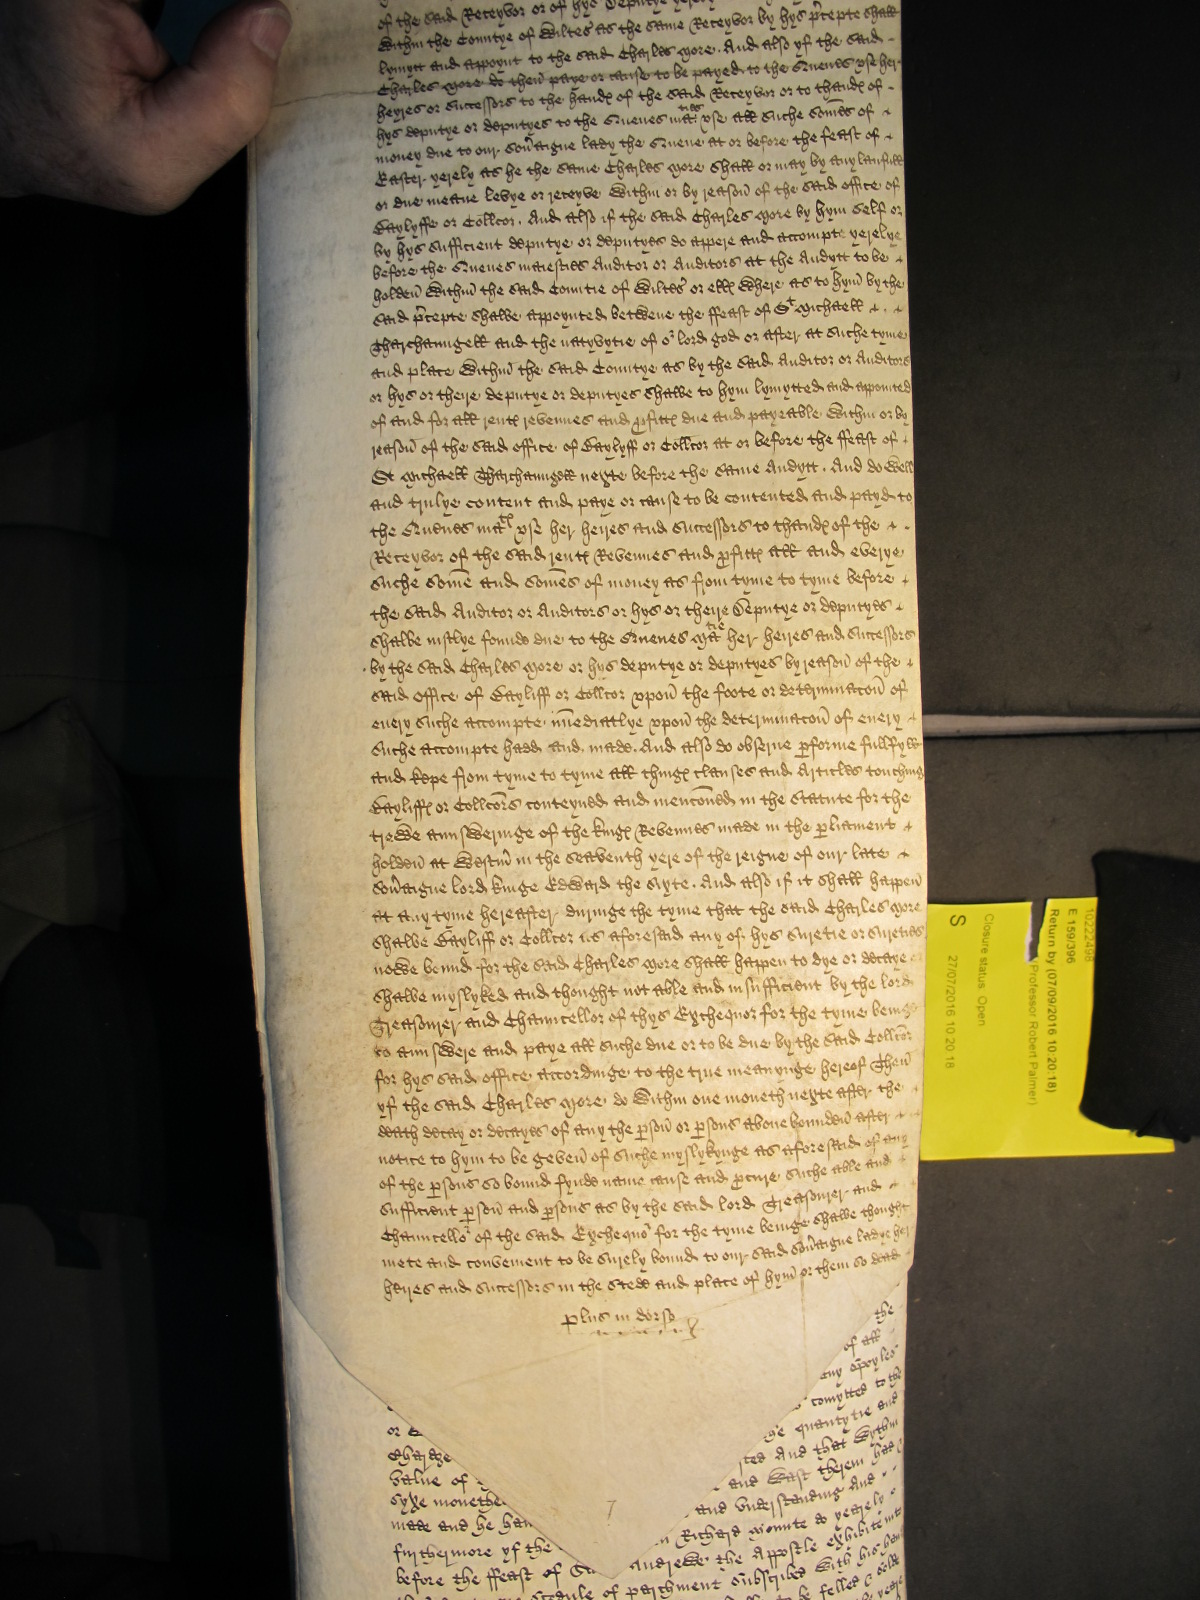 of the said Receyvor or of hys Deputye yerely
within the Countye of Wiltes as the same Receyvor by hys p̄cepte shall
lymytt and appoynt to the said Charles More. And also yf the said
Charles More do then̄ paye or cause to be payed to the Quenes use her
heyres or successors to the handꝭ of the said Receyvor or to thandꝭ of
hys deputye or deputyes to the Quenes ma^ties use all suche somēs of
money due to our sov̄aigne lady the Quene at or before the feast of
Easter yerely as he the same Charles More shall or may by any laufull
or due meane levye or receyve within or by reason̄ of the said office of
Baylyffe or Collcor. And also if the said Charles More by hym self or
by hys sufficient deputye or deputyes do appere and accompte yerelye
before the Quenes maiesties Auditor or Auditors at the Audytt to be
holden̄ within̄ the said Countie of Wiltes or ellꝭ where as to hym̄ by the
said p̄cepte shalbe appoynted betwene the ffeast of S^t Michaell
Tharchaungell and the natyvytie of o^r lord god or after at suche tyme
and place within̄ the said Countye as by the said Auditor or Auditors
or hys or theire deputye or deputyes shalbe to hym lymytted and appointed
of and for all rentꝭ revenues and ꝓfittꝭ due and payeable within or by
reason̄ of the said office of Baylyff or Collcor at or before the ffeast of
St Michaell Tharchaungell nexte before the same Audytt. And do well
and trulye content and paye or cause to be contented and payd to
the Quenes ma^tes use her heires and successors to thandꝭ of the
Receyvor of the said rentꝭ Revenues and ꝓfittꝭ all and everye
suche som̄e and som̄es of money as from tyme to tyme before
the said Auditor or Auditors or hys or theire Deputye or deputyes
shalbe iustlye founde due to the Quenes Ma^tie her heires and successors
by the said Charles More or hys deputye or deputyes by reason̄ of the
said office of Bayliff or Collcor upon̄ the foote or determinacōn of
every suche accompte im̄ediatlye upon̄ the determinacōn of every
suche accompte hadd and made. And also do observe ꝑforme fullfyll
and kepe from tyme to tyme all thingꝭ clauses and Articles touching
Bayliffꝭ or Collcors conteyned and mencōned in the Statute for the
trewe aunsweringe of the kingꝭ Revenues made in the ꝑliament
holden̄ at Westm̄ in the seaventh yere of the reigne of our late
sov̄aigne lord kinge Edward the sixte. And also if it shall happen̄
at any tyme hereafter duringe the tyme that the said Charles More
shalbe Bayliff or Collcor as aforesaid any of hys suretie or sureties
nowe bound for the said Charles More shall happen to dye or decaye or
shalbe myslyked and thought not able and insufficient by the lord
Treasourer and Chauncellor of thys Exchequor for the tyme beinge
to aunswere and paye all suche due or to be due by the said Collcor
for hys said office accordinge to the true meanynge hereof Then̄
yf the said Charles More do within one moneth nexte after the
death decay or decayes of any the ꝑson̄ or ꝑsons above bounden̄ after
notice to hym to be geven̄ of suche myslykynge as aforesaid of any
of the ꝑsons so bound fynde name cause and ꝓcure suche able and
sufficient ꝑson̄ and ꝑsons as by the said lord Treasourer and
Chauncello^r of the said Exchequo^r for the tyme beinge shalbe thought
mete and convenient to be surely bound to our said sov̄aigne ladye her
heires and successors in the stedd and place of hym̄ or them so dead
plus in dorso
the
of all
any
comytted to the
or
Chardge
the quantytie and
And that wythin
value of
and wast therein had
syxe monethe
and understanding And
made and he
Richard Mounte do yearely
furthermore yf the
before the ffeast of S
Andrewe the Appostle exhibite into
Scedule of parchment subscribed with his hand
be felled
7
10222498
E 159/396
Return by (07/09/2016 10:20:18)
(Professor Robert Palmer)
Closure status: Open
S
27/07/2016 10:20:18